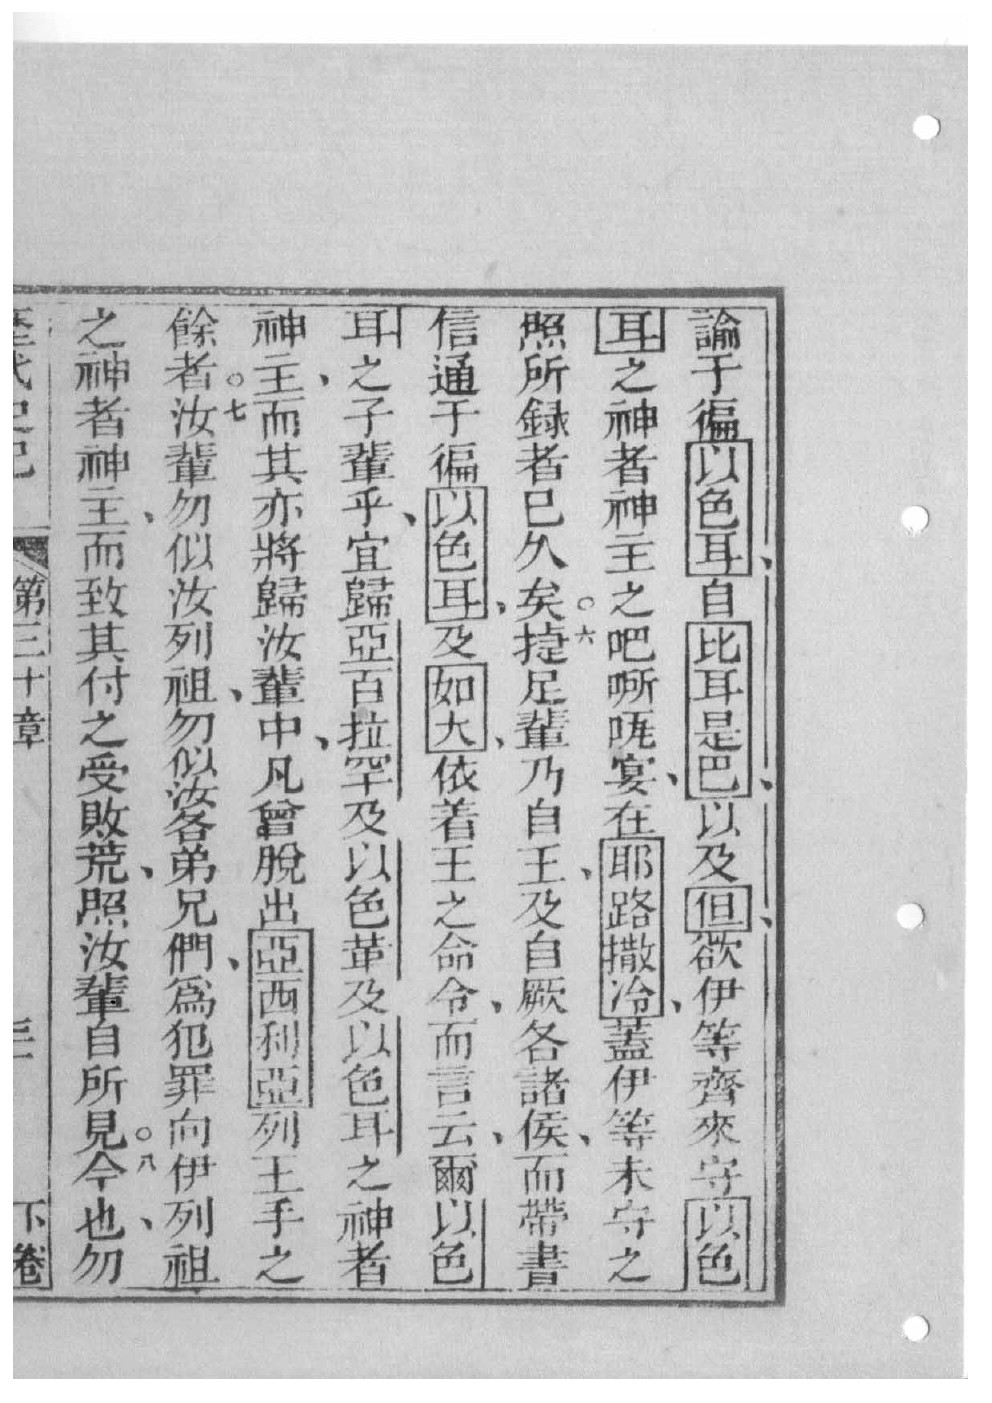 諭于徧以色耳、自比耳是巴、以及但、欲伊等齊來守以色
耳之神者神主之吧𠵽咓宴、在耶路撒冷、蓋伊等未守之
照所録者已久矣。六捷足輩乃自王、及自厥各諸侯、而帶書
信通于徧以色耳、及如大、依着王之命令、而言云、爾以色
耳之子輩乎、宜歸亞百拉罕及以色革及以色耳之神者
神主、而其亦將歸汝輩中、凡曾脫出亞西利亞列王手之
餘者。七汝輩勿似汝列祖、勿似汝各弟兄們、爲犯罪向伊列祖
之神者神主、而致其付之受敗荒、照汝輩自所見。八今也、勿
第三十章
下卷